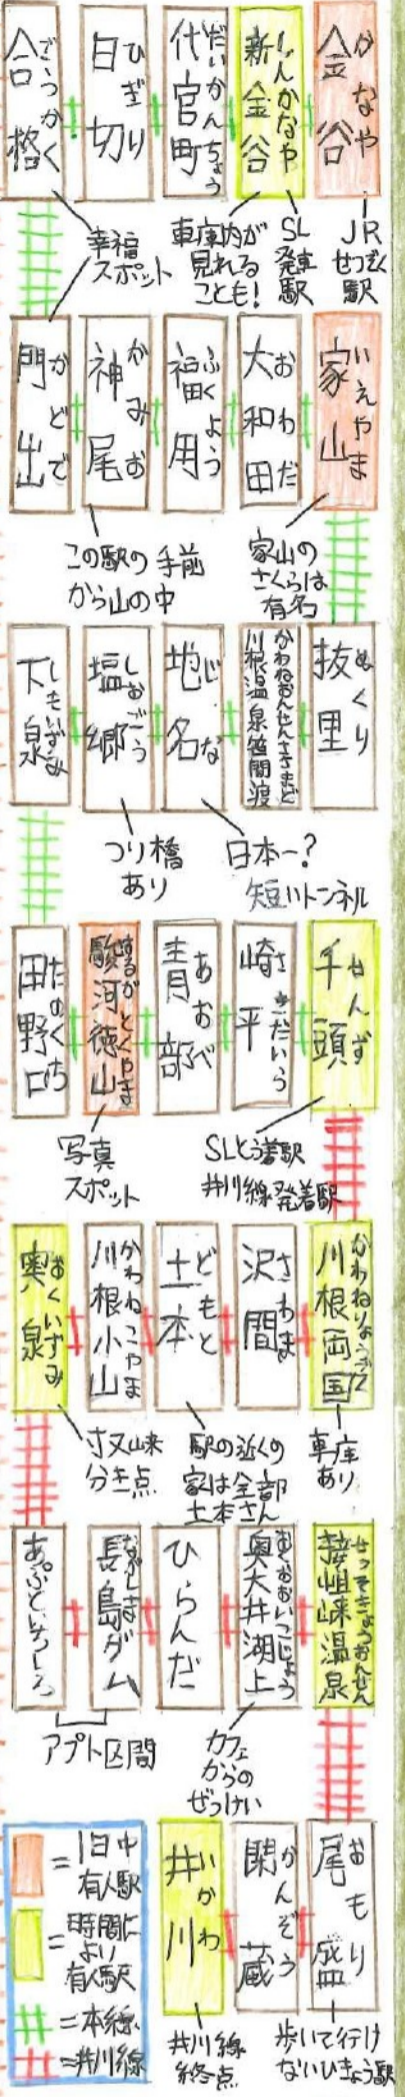 金谷
かなや
新金谷
しんかなや
代官町
だいかんちょう
日切
ひぎり
合格
ごうかく
JR
せつぞく
駅
SL
発車
駅
車庫内が
見れる
ことも!
幸福
スポット
家山
いえやま
大和田
おわだ
福用
ふくよう
神尾
かみお
門出
かどで
家山の
さくらは
有名
この駅の手前
から山の中
抜里
ぬくり
川根温泉笹間渡
かわねおんせんささまど
地名
じな
塩郷
しおごう
下泉
しもいずみ
日本一?
短いトンネル
つり橋
あり
千頭
せんず
崎平
さきだいら
青部
あおべ
駿河徳山
するがとくやま
田野口
たのくち
SLとう着駅
井川線発着駅
写真
スポット
川根両国
かわねりょうごく
沢間
さわま
土本
どもと
川根小山
かわねこやま
奥泉
おくいずみ
車庫
あり
駅の近くの
家は全部
土本さん
寸又峡
分き点
接岨峡温泉
せっそきょうおんせん
奥大井湖上
おくおおいこじょう
ひらんだ
長島ダム
ながしまダム
あぷといちしろ
カフェ
からの
ぜっけい
アプト区間
尾盛
おもり
閑蔵
かんぞう
井川
いかわ
歩いて行け
ないひきょう駅
井川線
終点
=1日中
有人駅
=時間に
より
有人駅
=本線
=井川線